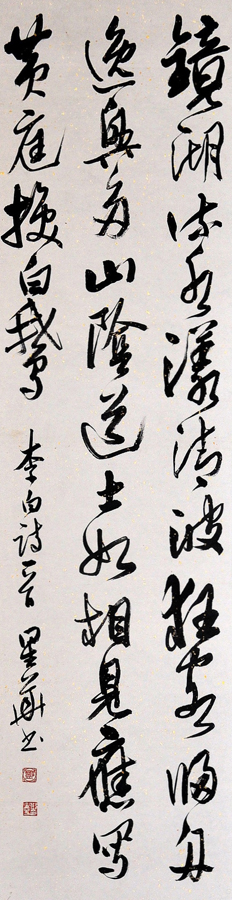 鏡湖流水漾清波狂客歸舟
逸興多山陰道士如相見應寫
黃庭換白鵝
李白詩一首 星華書